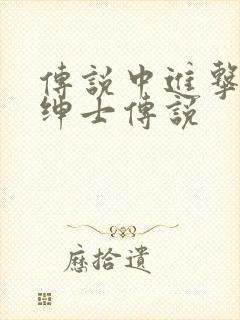 傳說中進擊
紳士傳說
歷拾遺